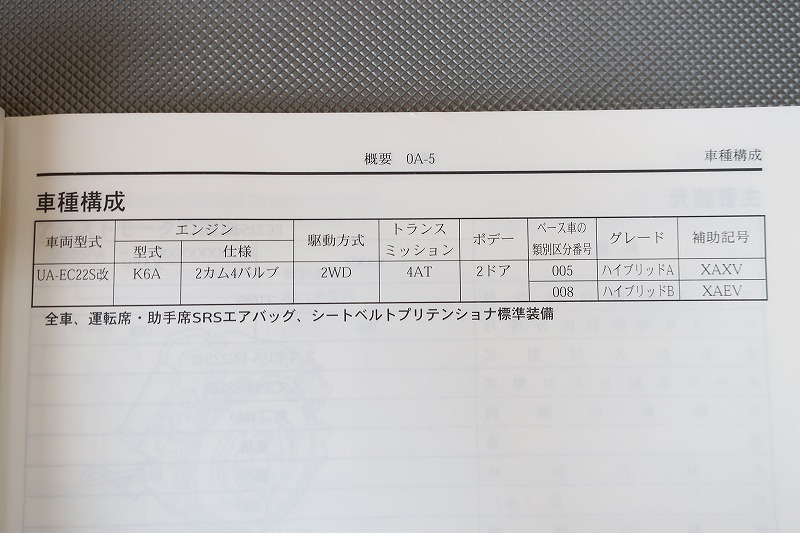 概要　0A-5
車種構成
車種構成
車両型式 エンジン 駆動方式 トランスミッション ボデー ベース車の類別区分番号 グレード 補助記号
型式 仕様
UA-EC22S改 K6A 2カム4バルブ 2WD 4AT 2ドア 005 ハイブリッドA XAXV
008 ハイブリッドB XAEV
全車、運転席・助手席SRSエアバッグ、シートベルトプリテンショナ標準装備